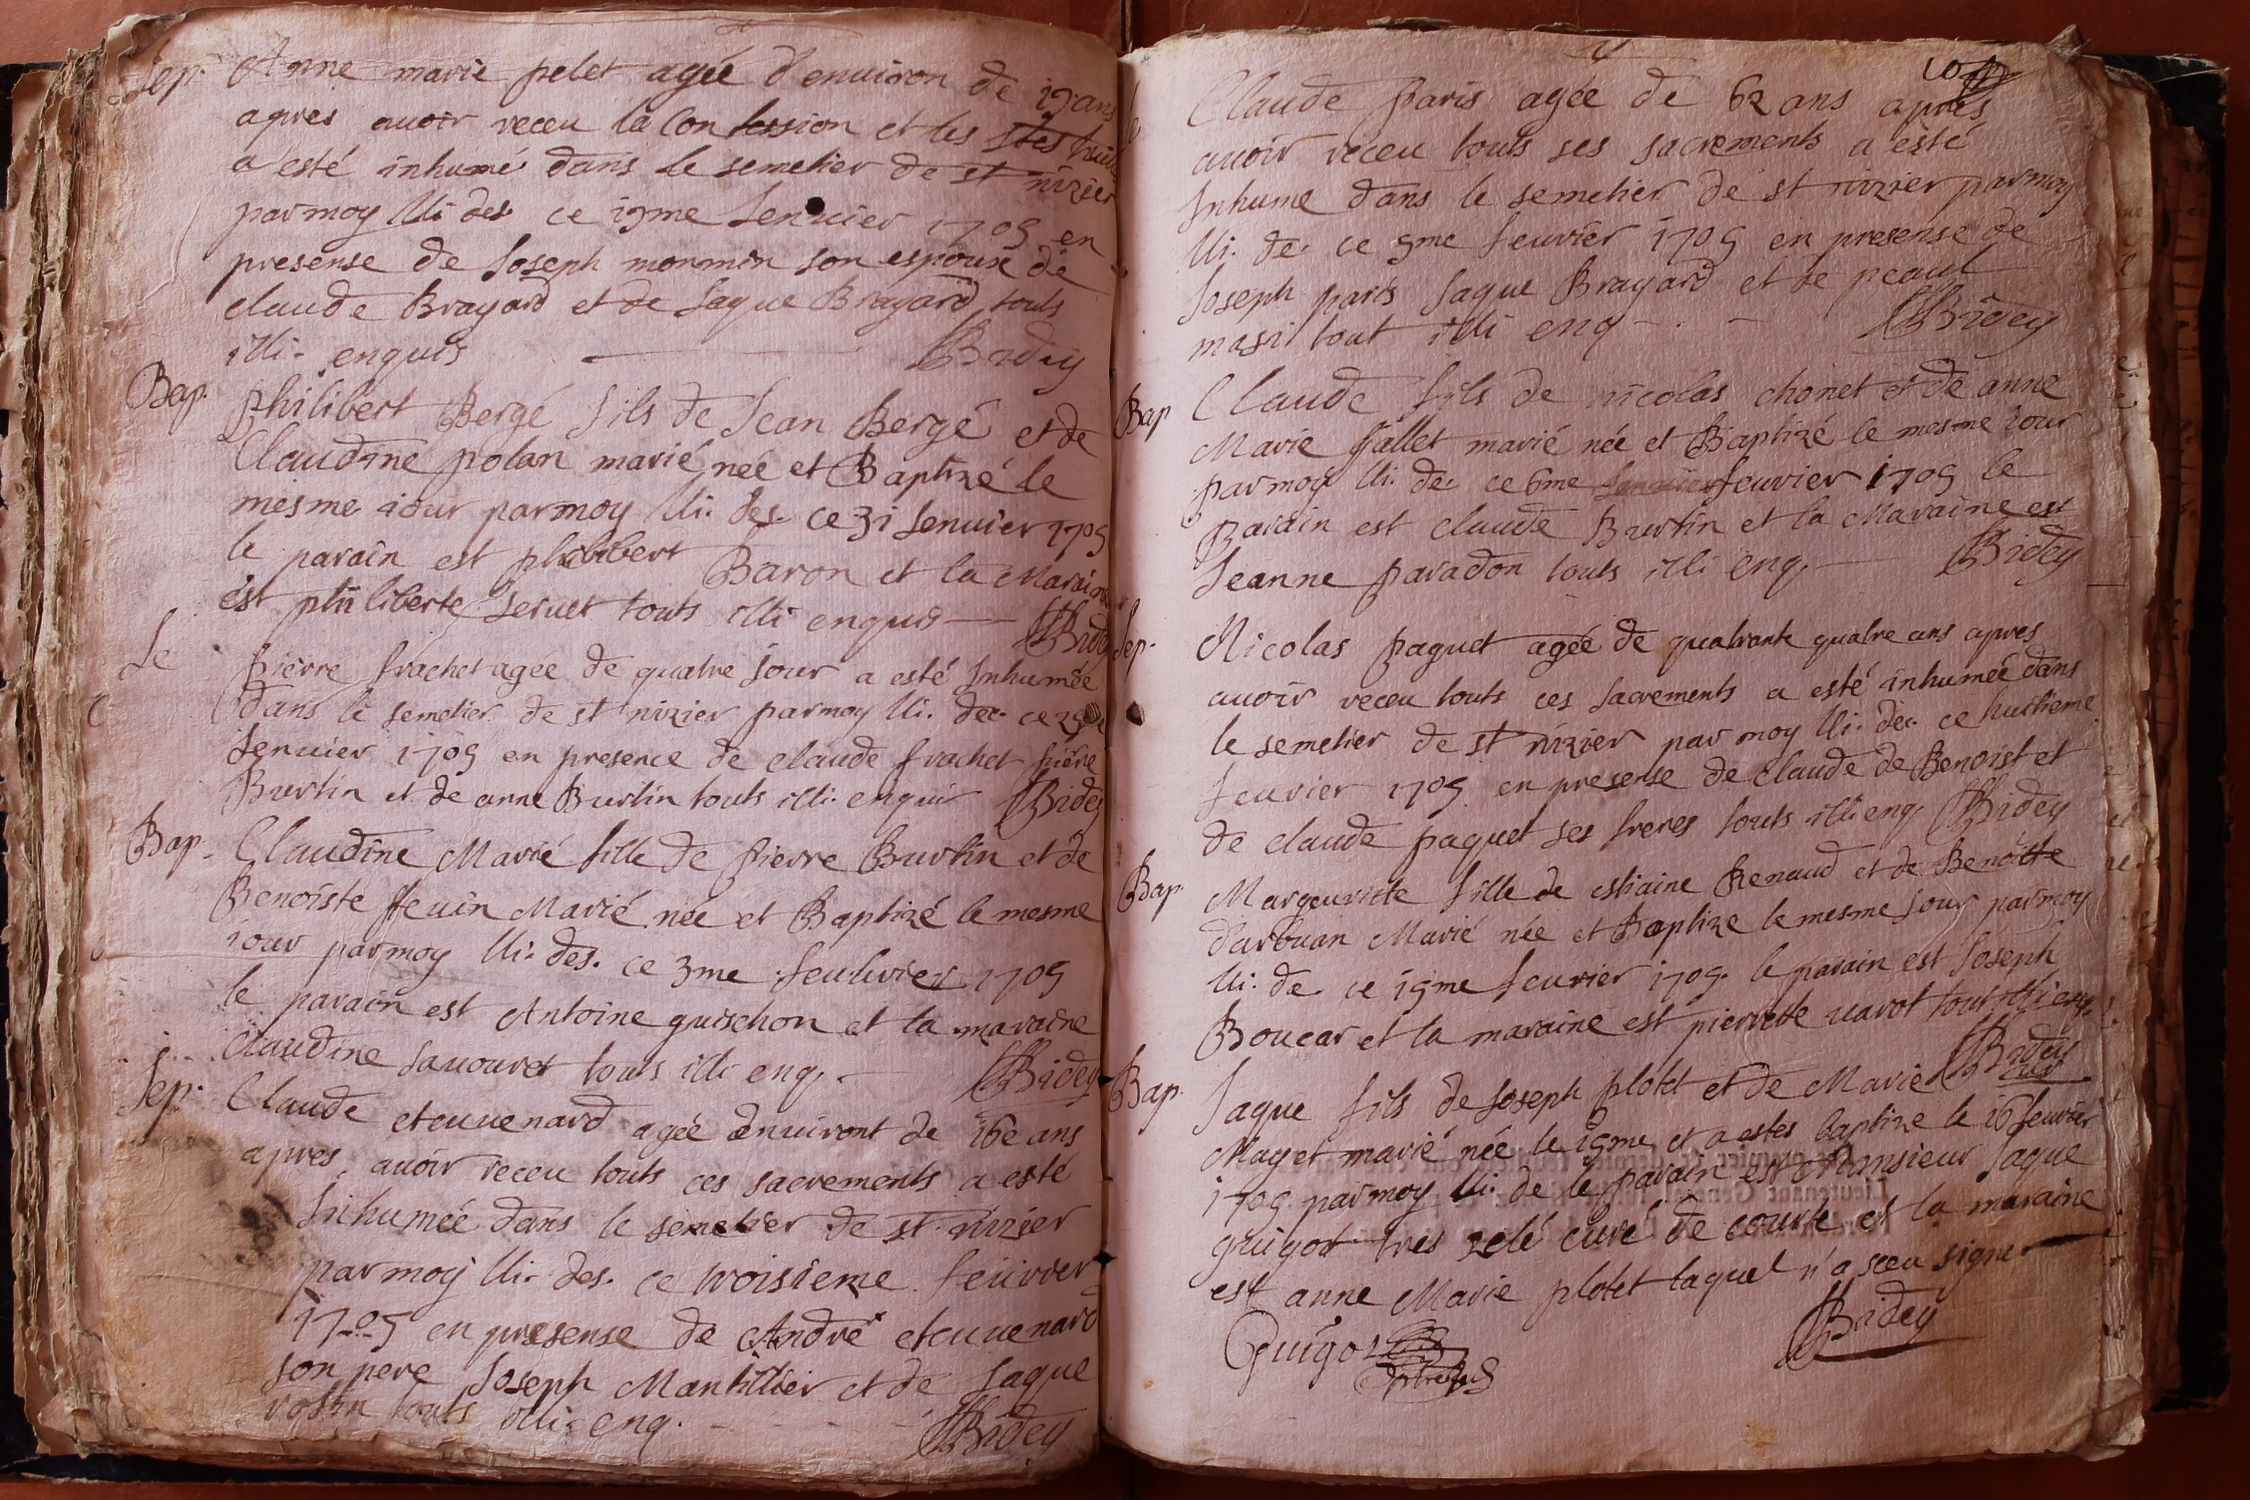 Sep. Anne marie pelet agée d'enuiron de 19 ans
apres auoir receu la Confession et les stes
a esté inhumé dans le semetier de st nizier
parmoy Ui. des. ce 19me Jenuier 1709 en
presense de Joseph monmin son espoux de
claude Brayard et de Jaque Brayard touts
illi. enquis Bidey
Bap. Philibert Bergé fils de Jean Bergé et de
Claudine polan marié née et Baptizé le
mesme iour parmoy Ui. des. ce 31 Jenuier 1709
le parain est philibert Baron et la Maraine
est philiberte Seruet touts illi enquis Bidey
Se pierre frachet agée de quatre Jour a esté Inhumée
dans le semetier de st nizier parmoy Ui. des. ce
Jenuier 1709 en presence de claude frachet pierre
Burtin et de anne Burtin touts illi. enquis Bidey
Bap. Claudine Marié fille de pierre Burtin et de
Benoiste ffeuin Marié née et Baptizé le mesme
iour parmoy Ui. des. ce 3me feubvrier 1709
le parain est Antoine guischon et la maraine
Claudine sauouret touts illi enq. Bidey
Sep. Claude etcuuenard agée denuiront de 16e ans
apres auoir receu touts ces sacrements a esté
Inhumée dans le semetier de st. nizier
parmoy Ui. des. ce troisieme feuvrier
1709 en presense de André etcuuenard
son pere Joseph Mantillier et de Jaque
rosin touts illi. enq. Bidey
Claude paris agée de 62 ans apres
auoir receu touts ses sacrements a esté
Inhume dans le semetier de st nizier parmoy
Ui. de. ce 5me feuvrier 1709 en presense de
Joseph paris Jaque Brayard et de peaul
masit tout illi enq Bidey
Bap Claude fils de nicolas chonet et de anne
Marie Gallet marié née et Baptizé le mesme iour
parmoy Ui. de. ce 6me feuvrier 1709 le
Parain est claude Burtin et la Maraine est
Jeanne paradon touts illi enq. Bidey
Sep. Nicolas paquet agée de quatrante quatre ans apres
auoir receu touts ces sacrements a esté inhumée dans
le semetier de st nizier par moy Ui. des. ce huitieme
feuvrier 1709 en presense de claude de Benoist et
de claude paquet ses freres touts illi enq. Bidey
Bap. Margeuritte fille de estiaine Renaud et de Benoitte
darbuan Marié née et Baptize le mesme jour parmoy
Ui. de. ce 15me feuvrier 1709. le parain est Joseph
Boucar et la maraine est pierrette uarot tout illi enq.
Bidey
Bap. Jaque fils de Joseph plotet et de Marie
Mayet marié née le 15me et a estes baptize le 16 feuvrier
1709 parmoy Ui. de le parain est Monsieur Jaque
guigot tres zelé curé de courte et la maraine
est anne Marie plotet laquel n'a sceu signer
Guigot Bidey